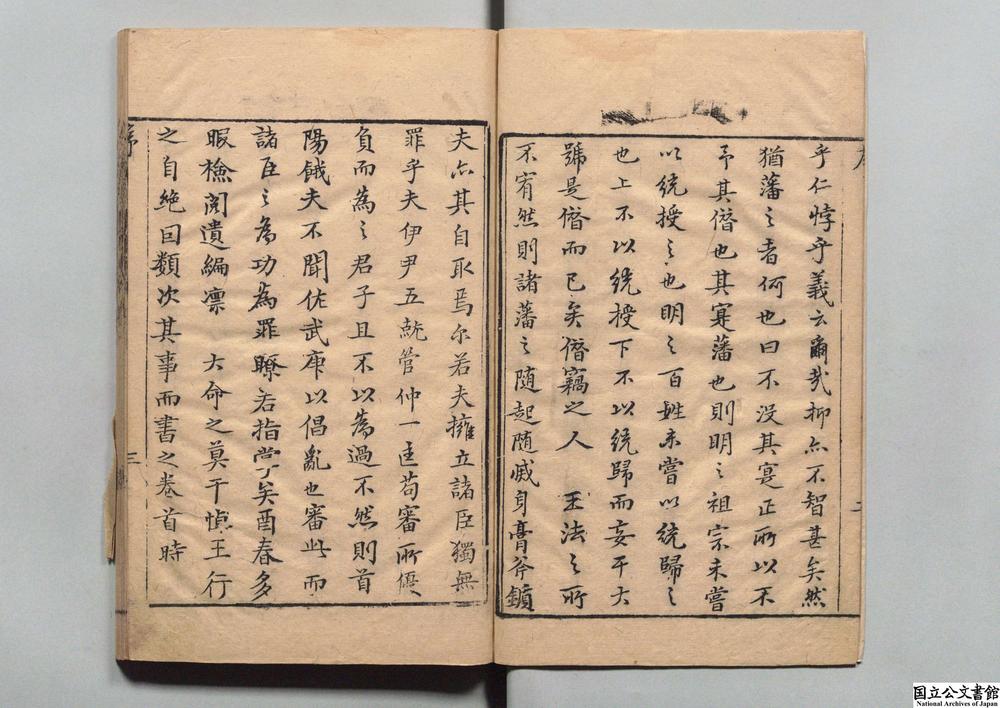 乎仁悖乎義云爾哉抑亦不智甚矣然
猶藩之者何也曰不没其寔正所以不
予其僭也其寔藩也則明之祖宗未嘗
以統授之也明之百姓未嘗以統歸之
也上不以統授下不以統歸而妄干大
號是僭而已矣僭竊之人 王法之所
不宥然則諸藩之随起随滅身膏斧鑕
夫亦其自取焉尔若夫擁立諸臣獨無
罪乎夫伊尹五就管仲一匡苟審所
負而為之君子且不以為過不然則首
陽餓夫不聞佐武庚以倡亂也審此而
諸臣之為功為罪瞭若指掌矣酉春多
暇檢閲遺編凛 大命之莫干慎王行
之自絶囙類次其事而書之卷首時
序
三
国立公文書館
National Archives of Japan